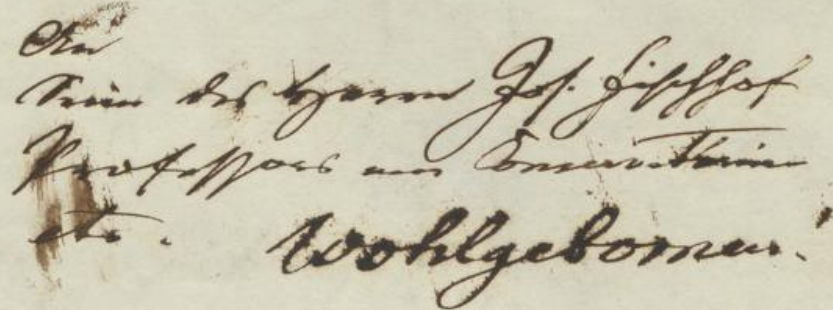 An
Seine des Herrn Jos. Fischhof
Professors am Conservatorium
etc. Wohlgeboren!